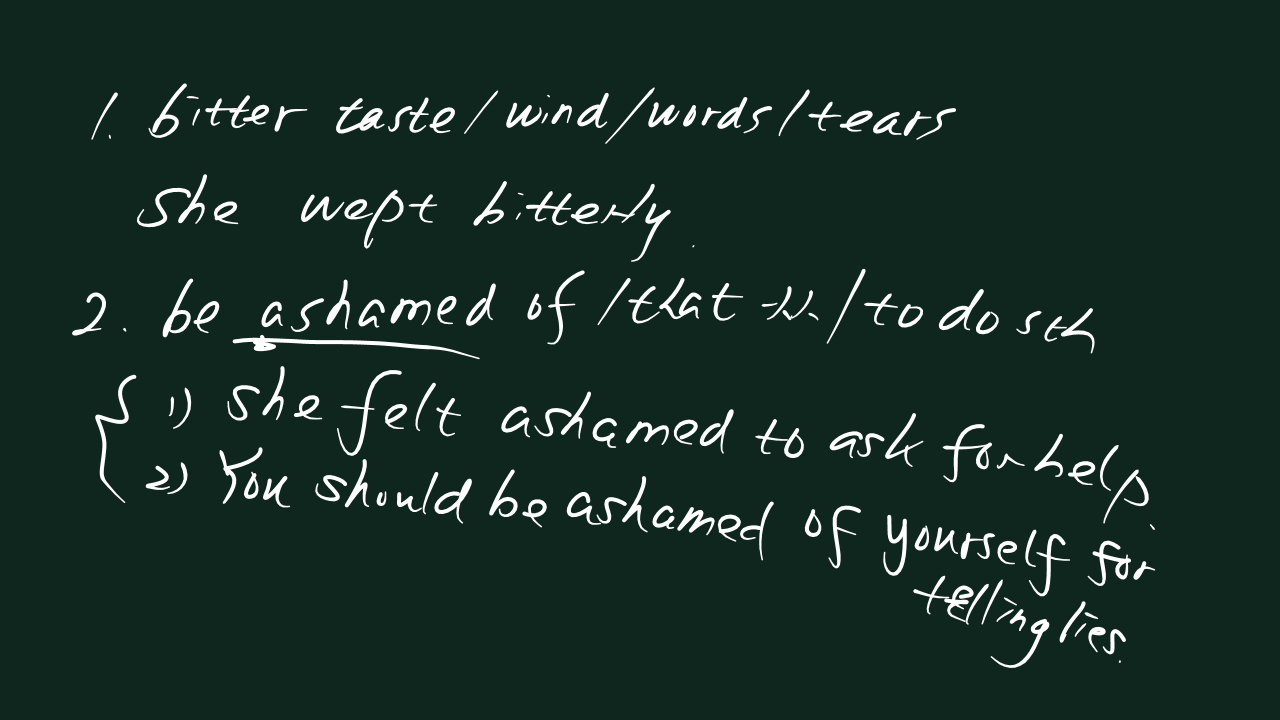 1. bitter taste/wind/words/tears
She wept bitterly.
2. be ashamed of /that 从/to do sth
1) She felt ashamed to ask for help.
2) You should be ashamed of yourself for
telling lies.